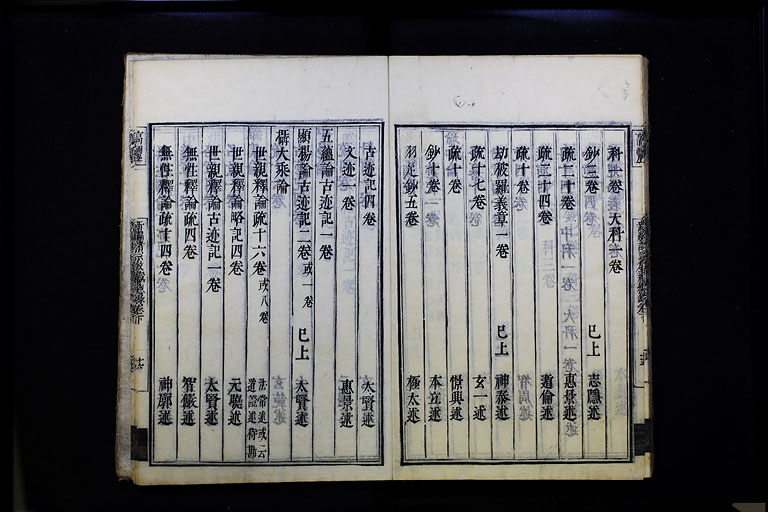 科一卷 大科一卷
鈔三卷 已上 志隱述
疏二十卷 惠景述
疏二十四卷 道倫述
疏十卷
劫波羅義章一卷 已上 神泰述
疏十七卷 玄一述
疏十卷 憬興述
鈔十卷 本立述
羽足鈔五卷 極太述
古迹記四卷 太賢述
文迹一卷 惠景述
五蘊論古迹記一卷
顯揚論古迹記二卷 或一卷 已上 太賢述
攝大乘論
世親釋論疏十六卷 或八卷 法常述或云道證述待勘
世親釋論略記四卷 元曉述
世親釋論古迹記一卷 太賢述
無性釋論疏四卷 智儼述
無性釋論疏十四卷 神廓述